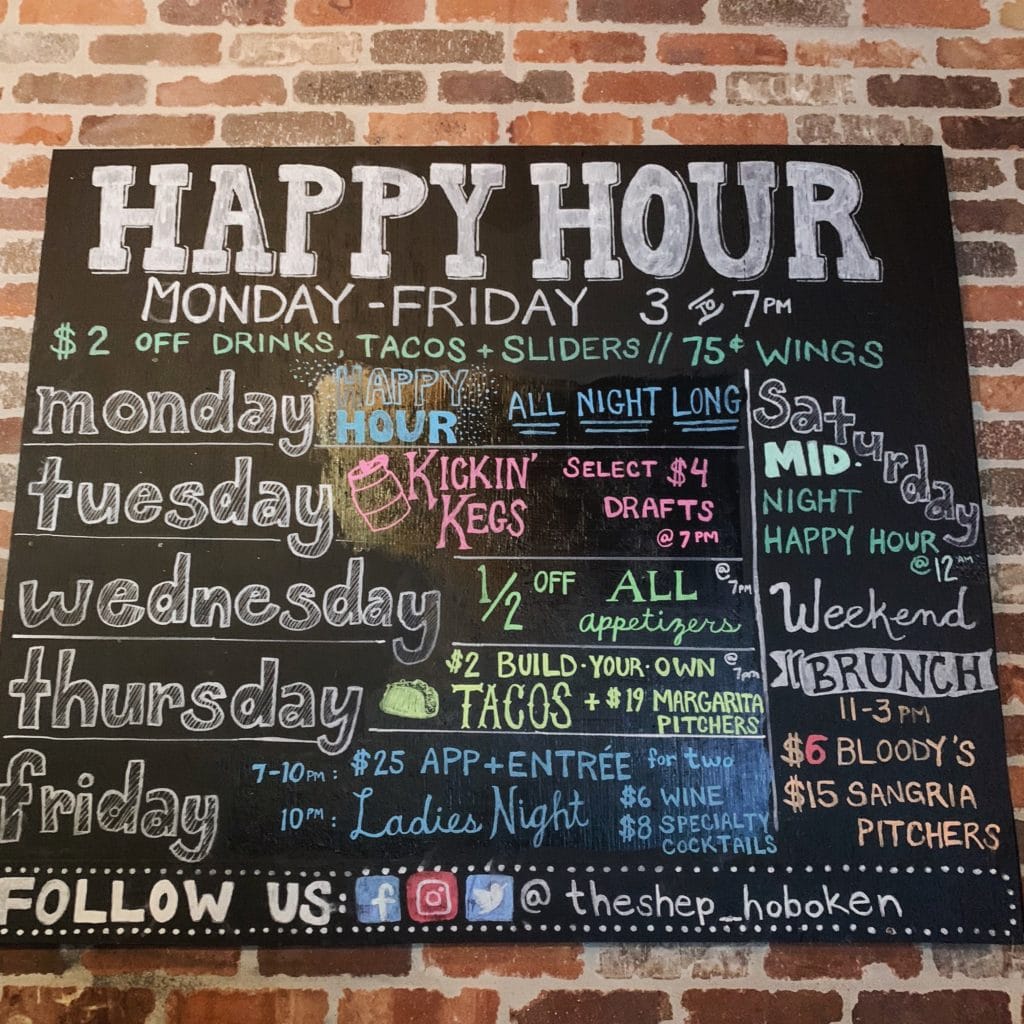 HAPPY HOUR
MONDAY - FRIDAY 3 TO 7 PM
$2 OFF DRINKS, TACOS + SLIDERS // 75¢ WINGS
monday HAPPY HOUR ALL NIGHT LONG
tuesday KICKIN' KEGS SELECT $4 DRAFTS @ 7 PM
wednesday 1/2 OFF ALL appetizers @ 7PM
thursday $2 BUILD·YOUR·OWN @ 7pm
TACOS + $19 MARGARITA PITCHERS
friday 7-10PM: $25 APP + ENTRÉE for two
10PM: Ladies Night $6 WINE
$8 SPECIALTY COCKTAILS
Saturday
MID·
NIGHT
HAPPY HOUR
@ 12 AM
Weekend
BRUNCH
11-3 PM
$6 BLOODY'S
$15 SANGRIA
PITCHERS
FOLLOW US: f @ theshep_hoboken